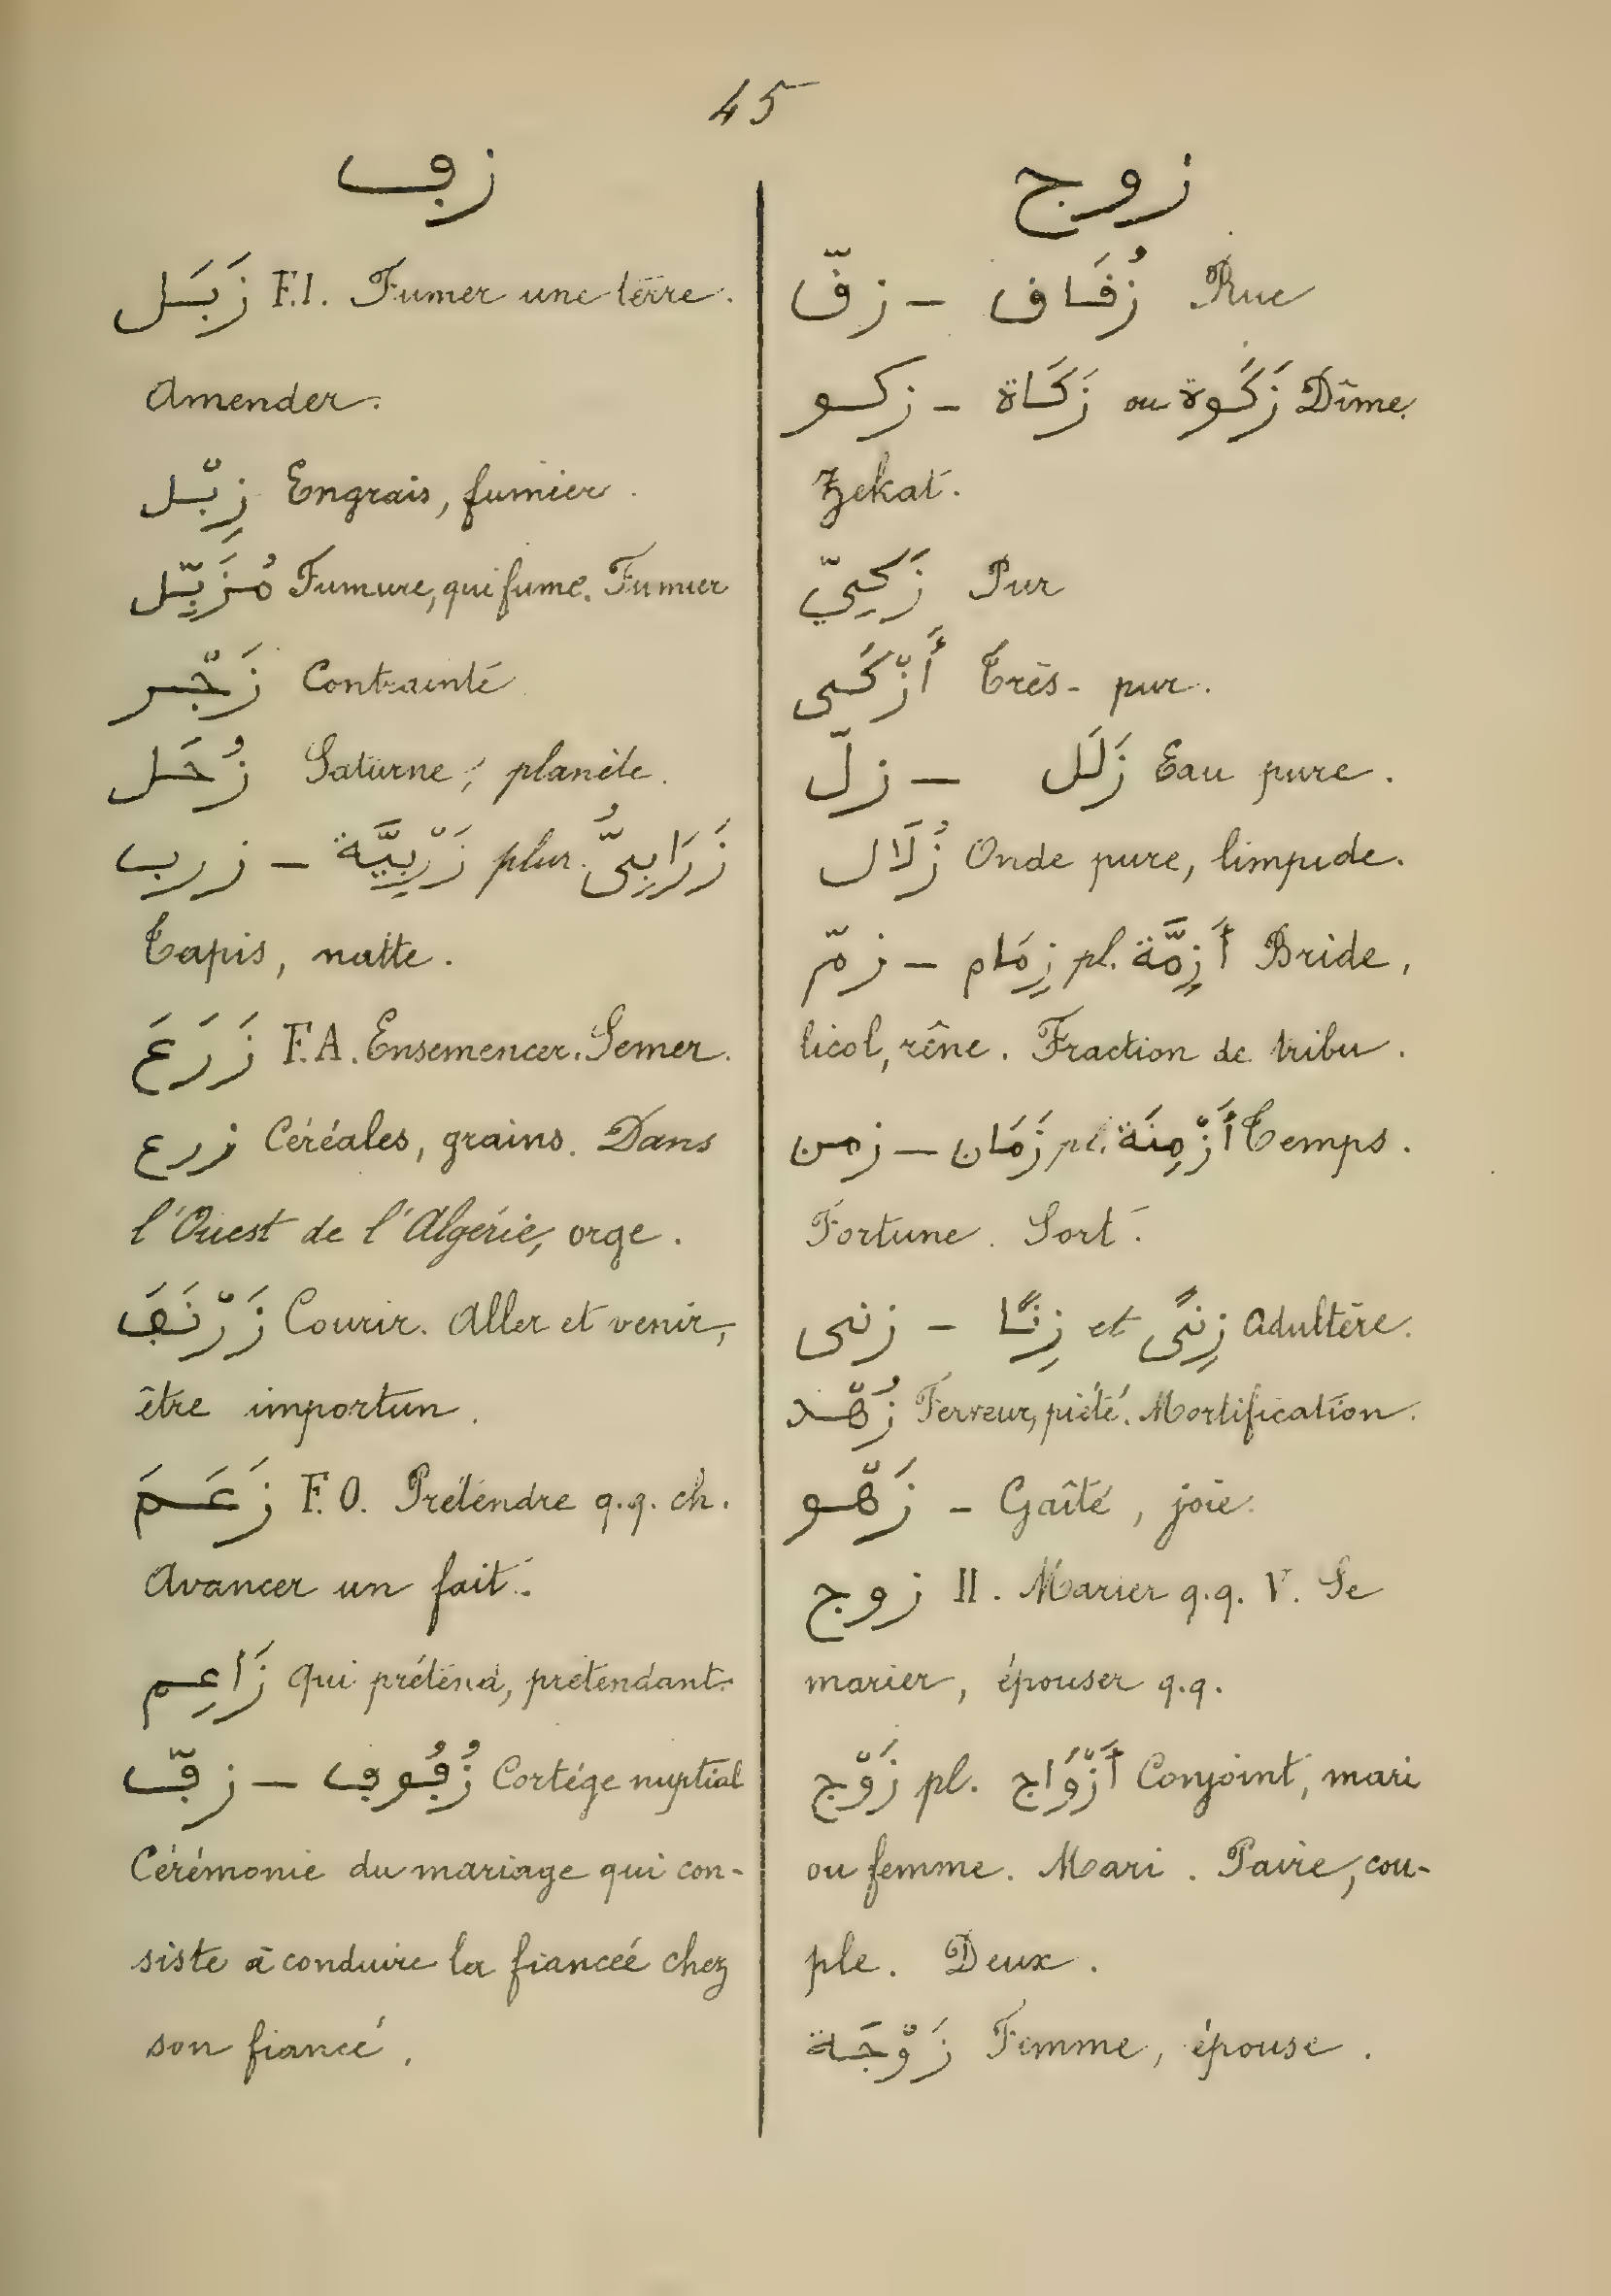 45
زڢ
زَبَـل F.I. Fumer une terre.
Amender.
زِبْـل Engrais, fumier.
مُـزَبِّـل Fumure, qui fume. Fumier
زَجْـر Contrainte
زُحَـل Saturne, planète.
زرب – زَرْبِيَّة plur. زَرَابِىُّ
Tapis, natte.
زَرَعَ F.A. Ensemencer. Semer.
زرع Céréales, grains. Dans
l'Ouest de l'Algérie, orge.
زَرْنَڢَ Courir. Aller et venir,
être importun.
زَعَـمَ F.O. Prétendre q.q. ch.
Avancer un fait.
زَاعِـم qui prétend, prétendant.
زڢّ – زُڢُوڢ Cortége nuptial
Cérémonie du mariage qui con-
siste à conduire la fiancée chez
son fiancé.
زوج
زڧّ – زُڧَـاڧ Rue
زكـو – زَكَـاة ou زَكَـوة Dîme.
Zekat.
زَكِيّ Pur
أَزْكَـى Très-pur.
زلّ – زَلَل Eau pure.
زُلَال Onde pure, limpide.
زمّ – زِمَام pl. أَزِمَّة Bride,
licol, rêne. Fraction de tribu.
زمن – زَمَان pl. أَزْمِنَة Temps.
Fortune. Sort.
زنى – زِنًـا et زِنًى Adultère.
زُهْـد Ferveur, piété. Mortification.
زَهْـو – Gaîté, joie.
زوج II. Marier q.q. V. Se
marier, épouser q.q.
زَوْج pl. أَزْوَاج Conjoint, mari
ou femme. Mari. Paire, cou-
ple. Deux.
زَوْجَـة Femme, épouse.